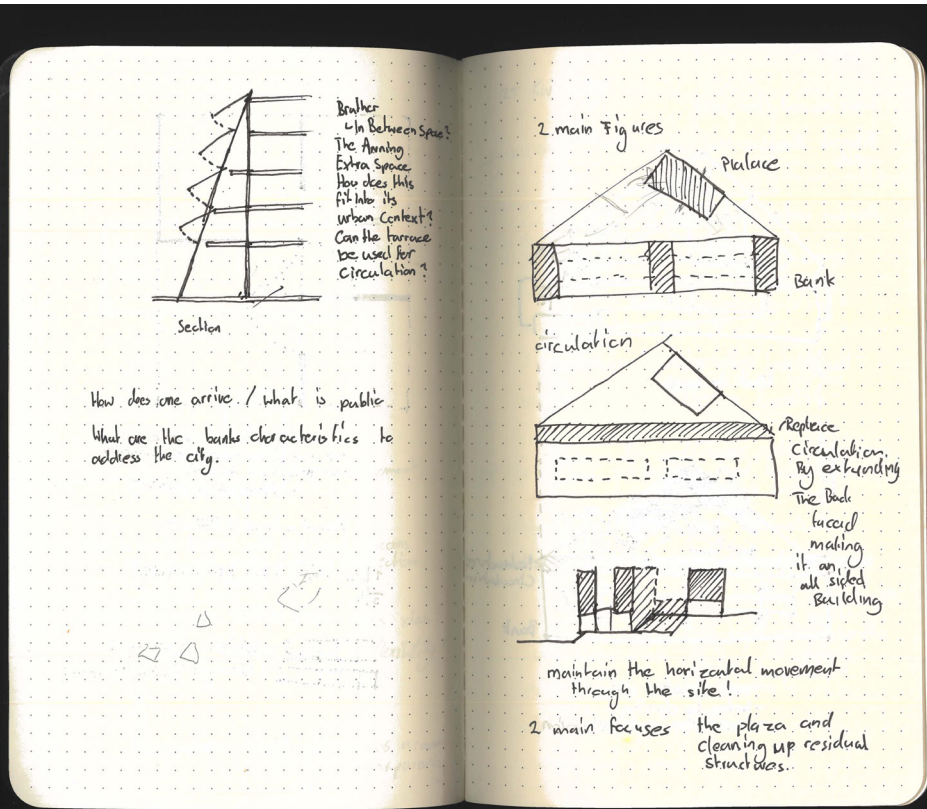 Bruther
↳In Between Space?
The Awning
Extra Space
How does this
fit into its
urban Context?
Can the tarrace
be used for
circulation?
Section
How does one arrive / what is public
What are the banks characteristics to
address the city.
2 main Figures
Palace
Bank
circulation
Replace
Circulation.
By extending
The Back
facad
making
it an
all sided
Building
maintain the horizontal movement
through the site!
2 main focuses the plaza and
cleaning up residual
structures.